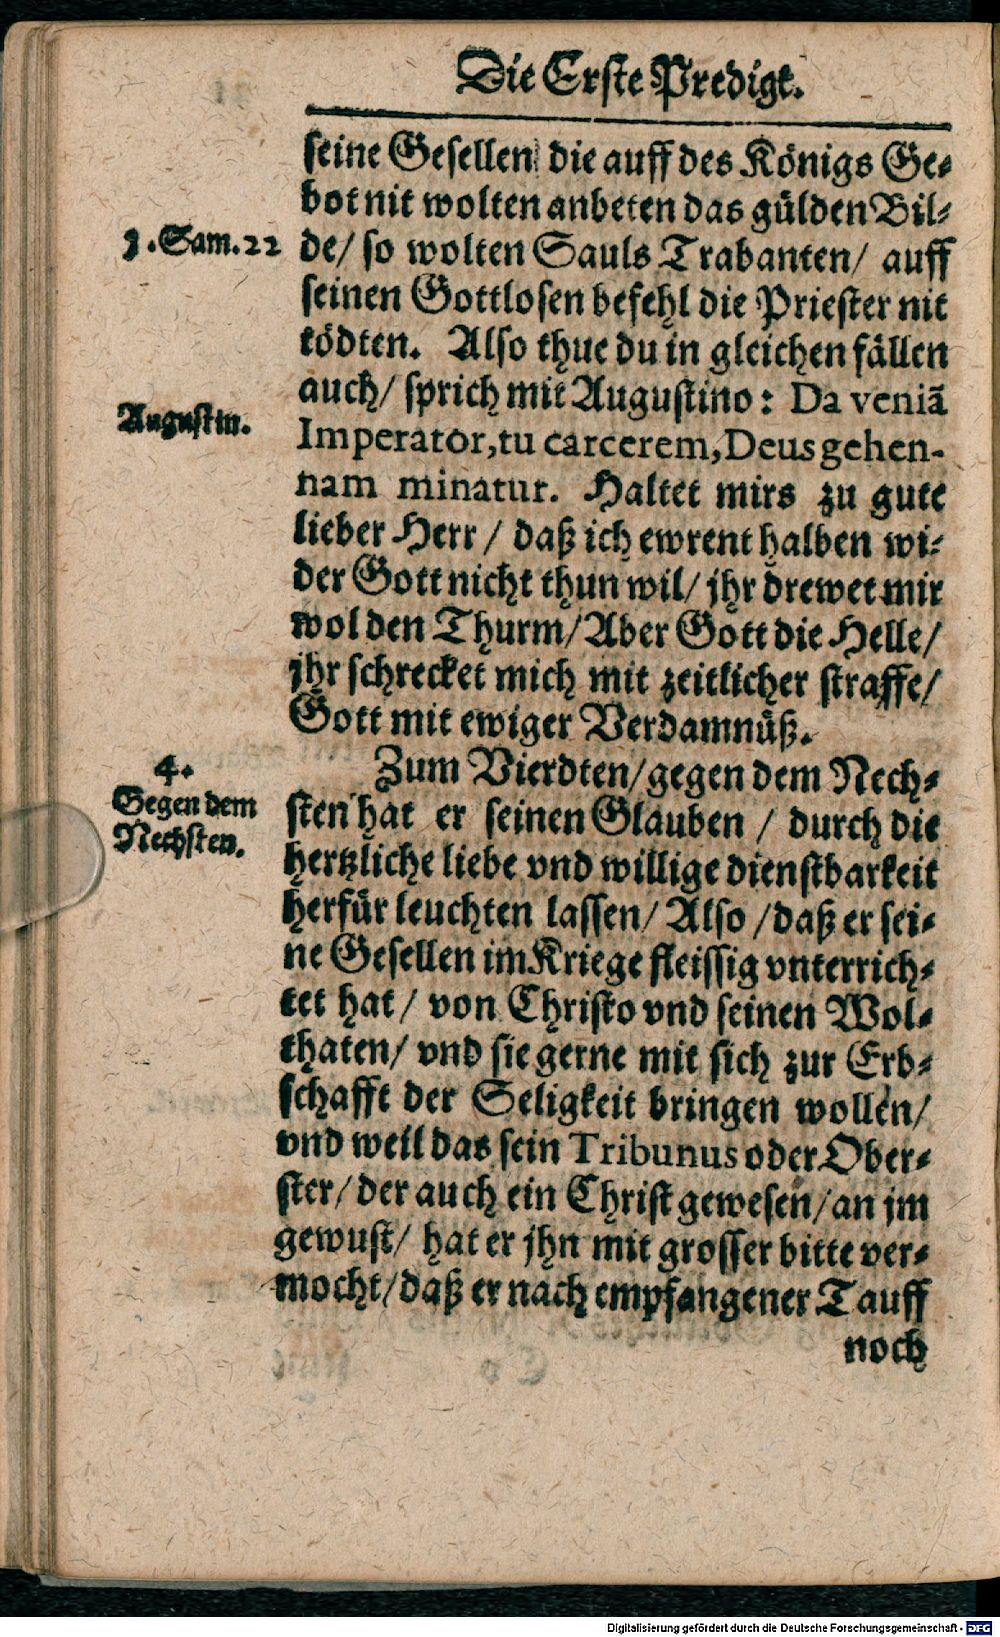 Die Erste Predigt.
seine Gesellen die auff des Königs Ge-
bot nit wolten anbeten das gülden Bil-
1. Sam. 22
de/ so wolten Sauls Trabanten/ auff
seinen Gottlosen befehl die Priester nit
tödten. Also thue du in gleichen fällen
auch/ sprich mit Augustino: Da veniã
Augustin.
Imperator, tu carcerem, Deus gehen-
nam minatur. Haltet mirs zu gute
lieber Herr / daß ich ewrent halben wi-
der Gott nicht thun wil/ jhr drewet mir
wol den Thurm/ Aber Gott die Helle/
jhr schrecket mich mit zeitlicher straffe/
Gott mit ewiger Verdamnüß.
4.
Gegen dem
Nechsten.
Zum Vierdten/ gegen dem Nech-
sten hat er seinen Glauben / durch die
hertzliche liebe vnd willige dienstbarkeit
herfür leuchten lassen/ Also / daß er sei-
ne Gesellen im Kriege fleissig vnterrich-
tet hat/ von Christo vnd seinen Wol-
thaten/ vnd sie gerne mit sich zur Erb-
schafft der Seligkeit bringen wollen/
vnd weil das sein Tribunus oder Ober-
ster/ der auch ein Christ gewesen/ an jm
gewust/ hat er jhn mit grosser bitte ver-
mocht/ daß er nach empfangener Tauff
noch
Digitalisierung gefördert durch die Deutsche Forschungsgemeinschaft - DFG